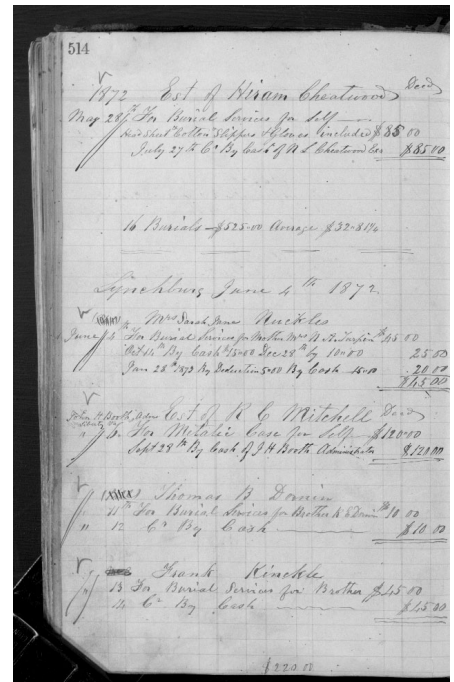 514
1872 Est of Hiram Cheatwood Decd
May 28th For Burial Services for Self
Head Sheet Cotton Slippers & Gloves included $85 00
July 27th Cr By Cash of N L Cheatwood Exr $85.00
16 Burials — $525-00 Average $32-81¼
Lynchburg June 4th 1872
Mrs Sarah Jane Nuckles
June 5th For Burial Services for Brother Wm N H $45.00
Oct 14th By Cash $15-00 Dec 28th by 10-00 25 00
Jan 25th 1873 By Deduction 5-00 By Cash 15-00 20.00
$45.00
John H Booth, Adm Est of R C Mitchell Decd
" 6 For Metalic Case for Self $120-00
Sept 28th By Cash of J H Booth Administrator $120.00
(XXXX) Thomas B
" 11th For Burial Services for Brother $10 00
" 12 Cr By Cash $10.00
Frank Kinckle
" 13 For Burial Services for Brother $45.00
" 14 Cr By Cash $45.00
$220.00